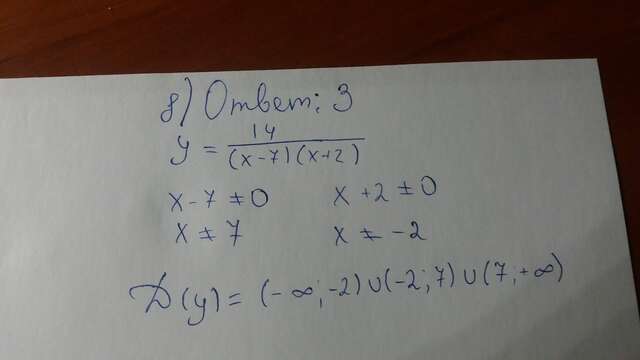 8) Ответ: 3
y = 14 / (x-7)(x+2)
x - 7 ≠ 0 x + 2 ≠ 0
x ≠ 7 x ≠ -2
D(y) = (-∞; -2) ∪ (-2; 7) ∪ (7; +∞)